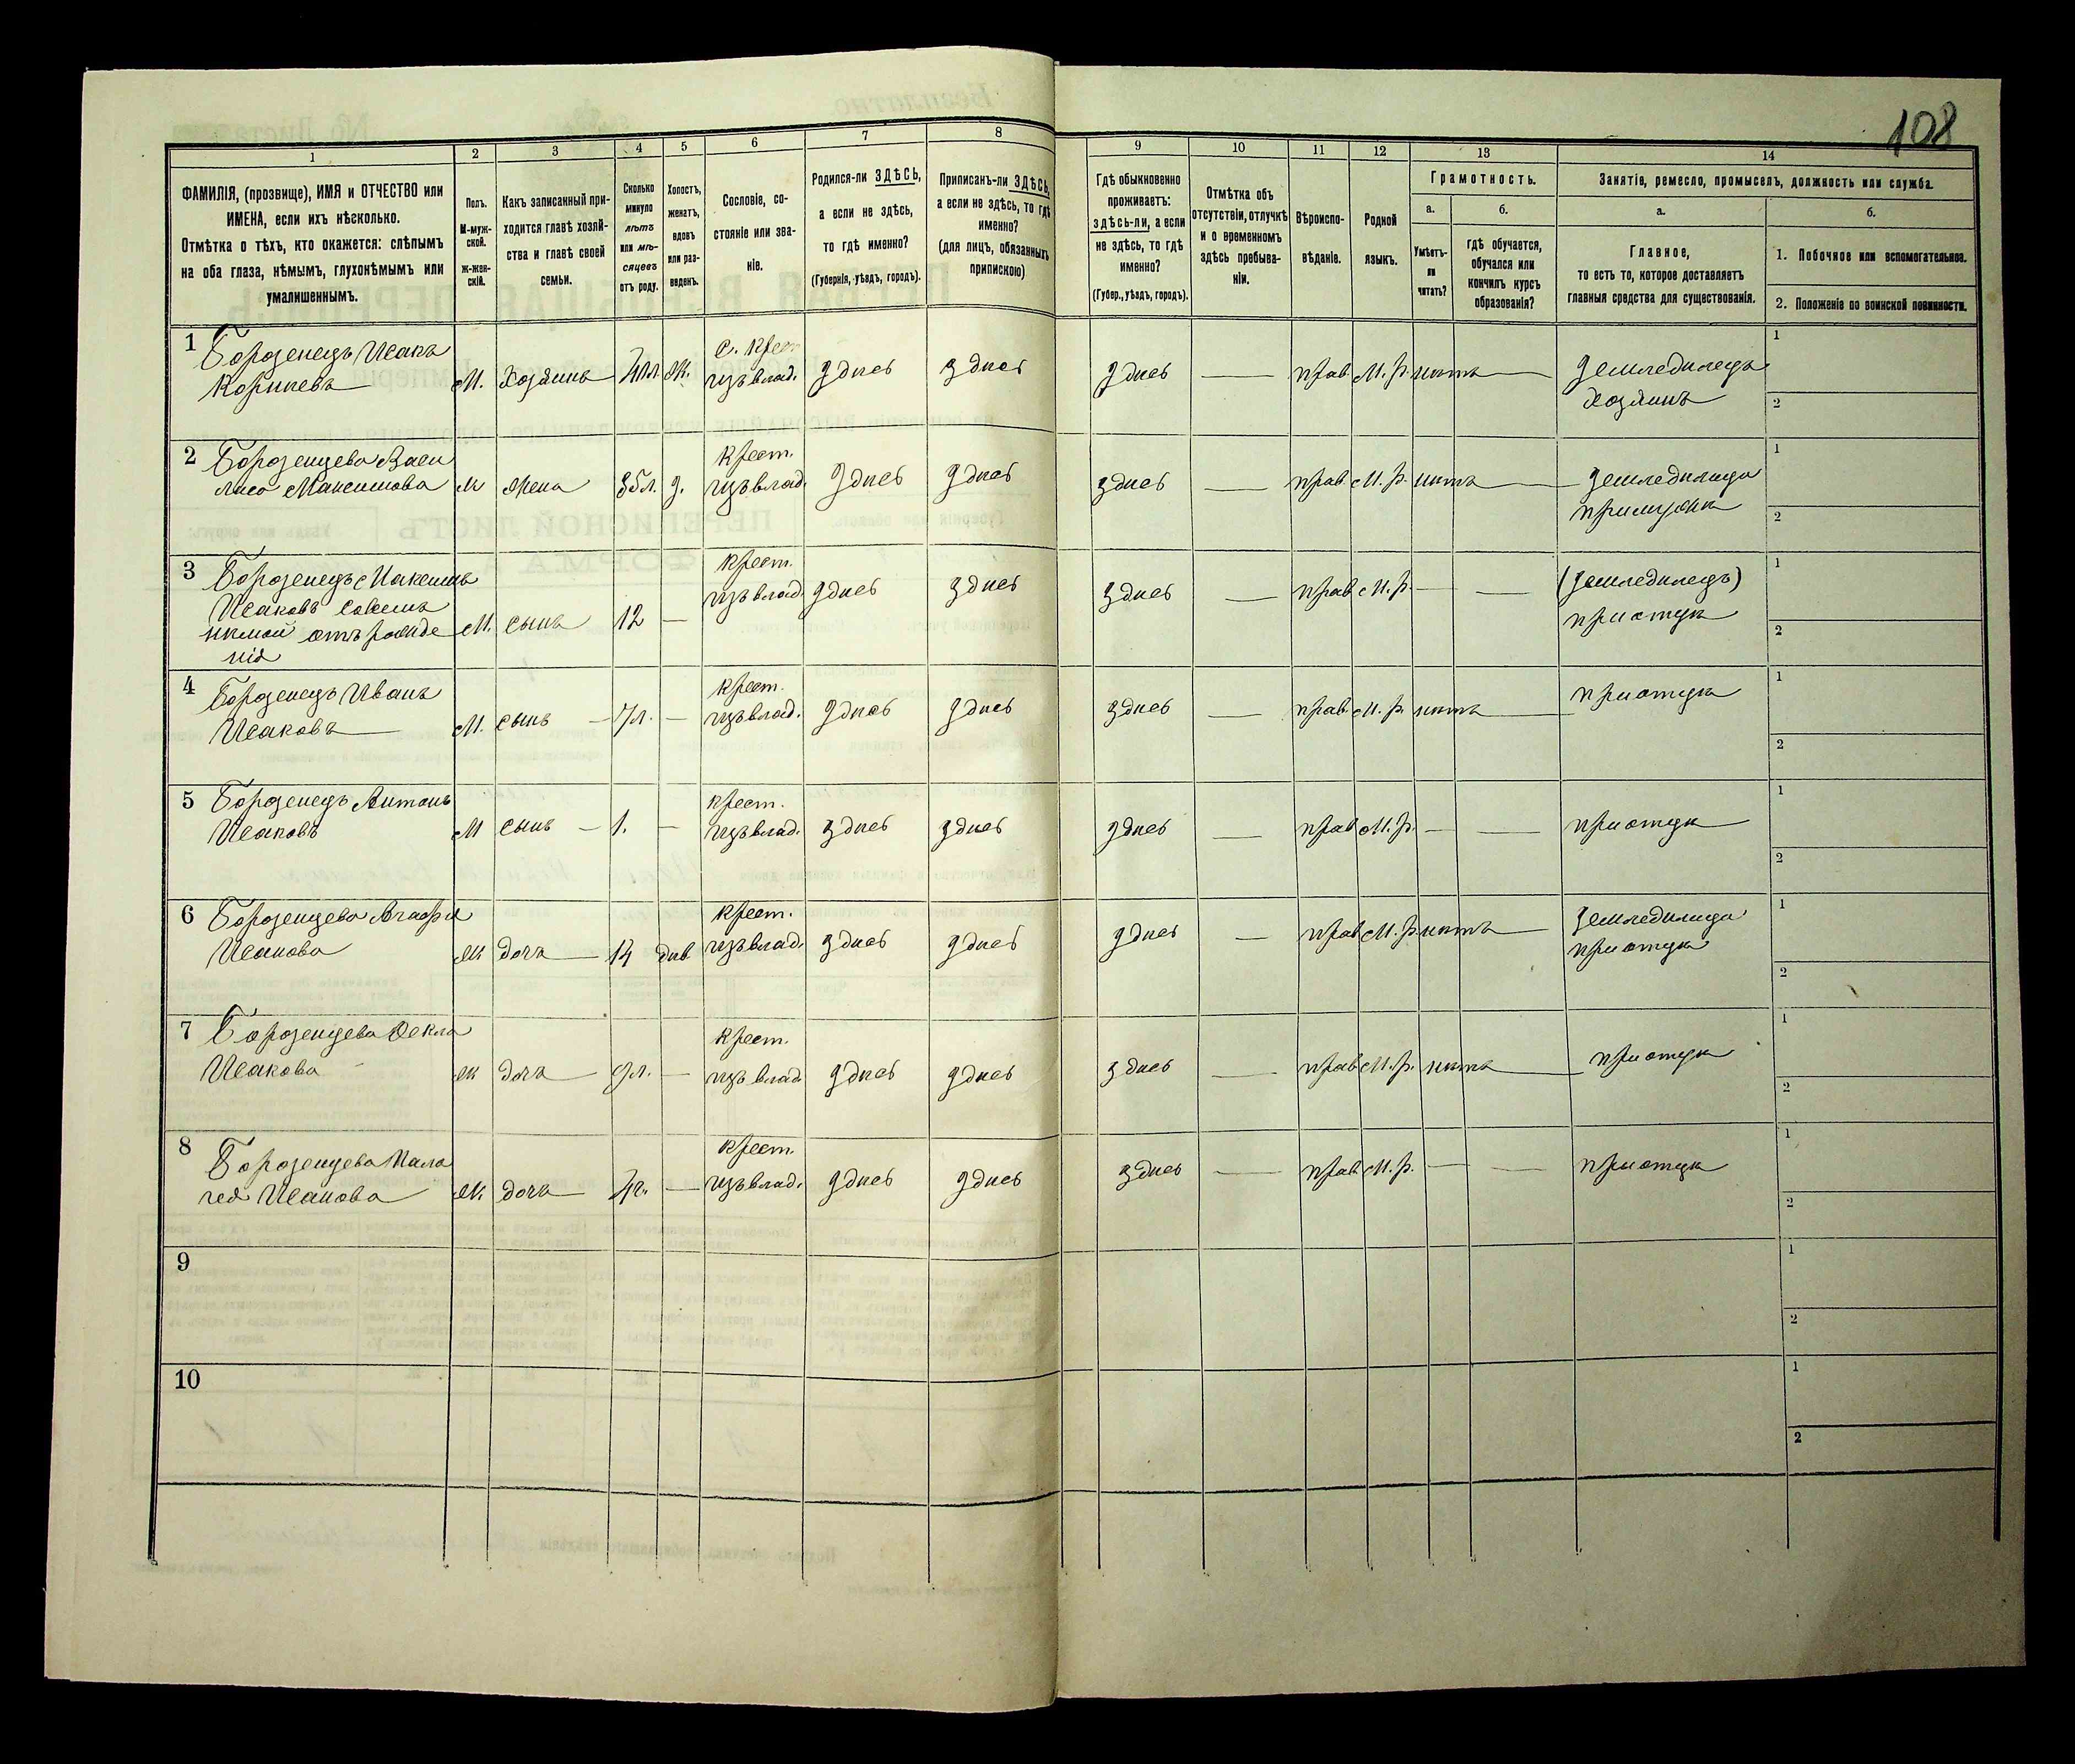 108
1 2 3 4 5 6 7 8 9 10 11 12 13 14
ФАМИЛІЯ, (прозвище), ИМЯ и ОТЧЕСТВО или
ИМЕНА, если ихъ нѣсколько.
Отмѣтка о тѣхъ, кто окажется: слѣпымъ
на оба глаза, нѣмымъ, глухонѣмымъ или
умалишеннымъ.
Полъ.
М-муж-
ской.
Ж-жен-
скій.
Какъ записанный при-
ходится главѣ хозяй-
ства и главѣ своей
семьи.
Сколько
минуло
лѣтъ
или мѣ-
сяцевъ
отъ роду.
Холостъ,
женатъ,
вдовъ
или раз-
веденъ.
Сословіе, со-
стояніе или зва-
ніе.
Родился-ли ЗДѢСЬ,
а если не здѣсь,
то гдѣ именно?
(Губернія, уѣздъ, городъ).
Приписанъ-ли ЗДѢСЬ,
а если не здѣсь, то гдѣ
именно?
(для лицъ, обязанныхъ
припискою)
Гдѣ обыкновенно
проживаетъ:
здѣсь-ли, а если
не здѣсь, то гдѣ
именно?
(Губер., уѣздъ, городъ).
Отмѣтка объ
отсутствіи, отлучкѣ
и о временномъ
здѣсь пребыва-
ніи.
Вѣроиспо-
вѣданіе.
Родной
языкъ.
Грамотность.
а.
Умѣетъ-
ли
читать?
б.
гдѣ обучается,
обучался или
кончилъ курсъ
образованія?
Занятіе, ремесло, промыселъ, должность или служба.
а.
Главное,
то есть то, которое доставляетъ
главныя средства для существованія.
б.
1. Побочное или вспомогательное.
2. Положеніе по воинской повинности.
1 Борозенецъ Исакъ
М. Хозяинъ Ж. с. крест изъ влад. здѣсь здѣсь здѣсь — прав М.р. нѣтъ — земледѣлецъ
хозяинъ
1
2
2 Борозенцева Васи
лиса Максимова М жена 35л. з. крест. изъ влад. здѣсь здѣсь здѣсь — прав М.р. нѣтъ — земледѣлица
при мужѣ
1
2
3 Борозенецъ Максимъ
Исаковъ совсемъ
нѣмой отъ рожде
нія М. сынъ 12 — крест. изъ влад. здѣсь здѣсь здѣсь — прав М.р. — — (земледѣлецъ)
при отцѣ
1
2
4 Борозенецъ Иванъ
Исаковъ М. сынъ — 7л. — крест. изъ влад. здѣсь здѣсь здѣсь — прав. М.р. нѣтъ — при отцѣ
1
2
5 Борозенецъ Антонъ
Исаковъ М сынъ — 1. — крест. изъ влад. здѣсь здѣсь здѣсь — прав М.р. — — при отцѣ
1
2
6 Борозенцева Агафія
Исакова Ж дочь — 14 дѣв. крест. изъ влад. здѣсь здѣсь здѣсь — прав М.р. нѣтъ — земледѣлица
при отцѣ
1
2
7 Борозенцева Фекла
Исакова Ж дочь — 9л. — крест. изъ влад здѣсь здѣсь здѣсь — прав М.р. нѣтъ — при отцѣ
1
2
8 Борозенцева Мала
Исакова Ж дочь — 4г. — крест. изъ влад. здѣсь здѣсь здѣсь — прав. М.р. — — при отцѣ
1
2
9
1
2
10
1
2